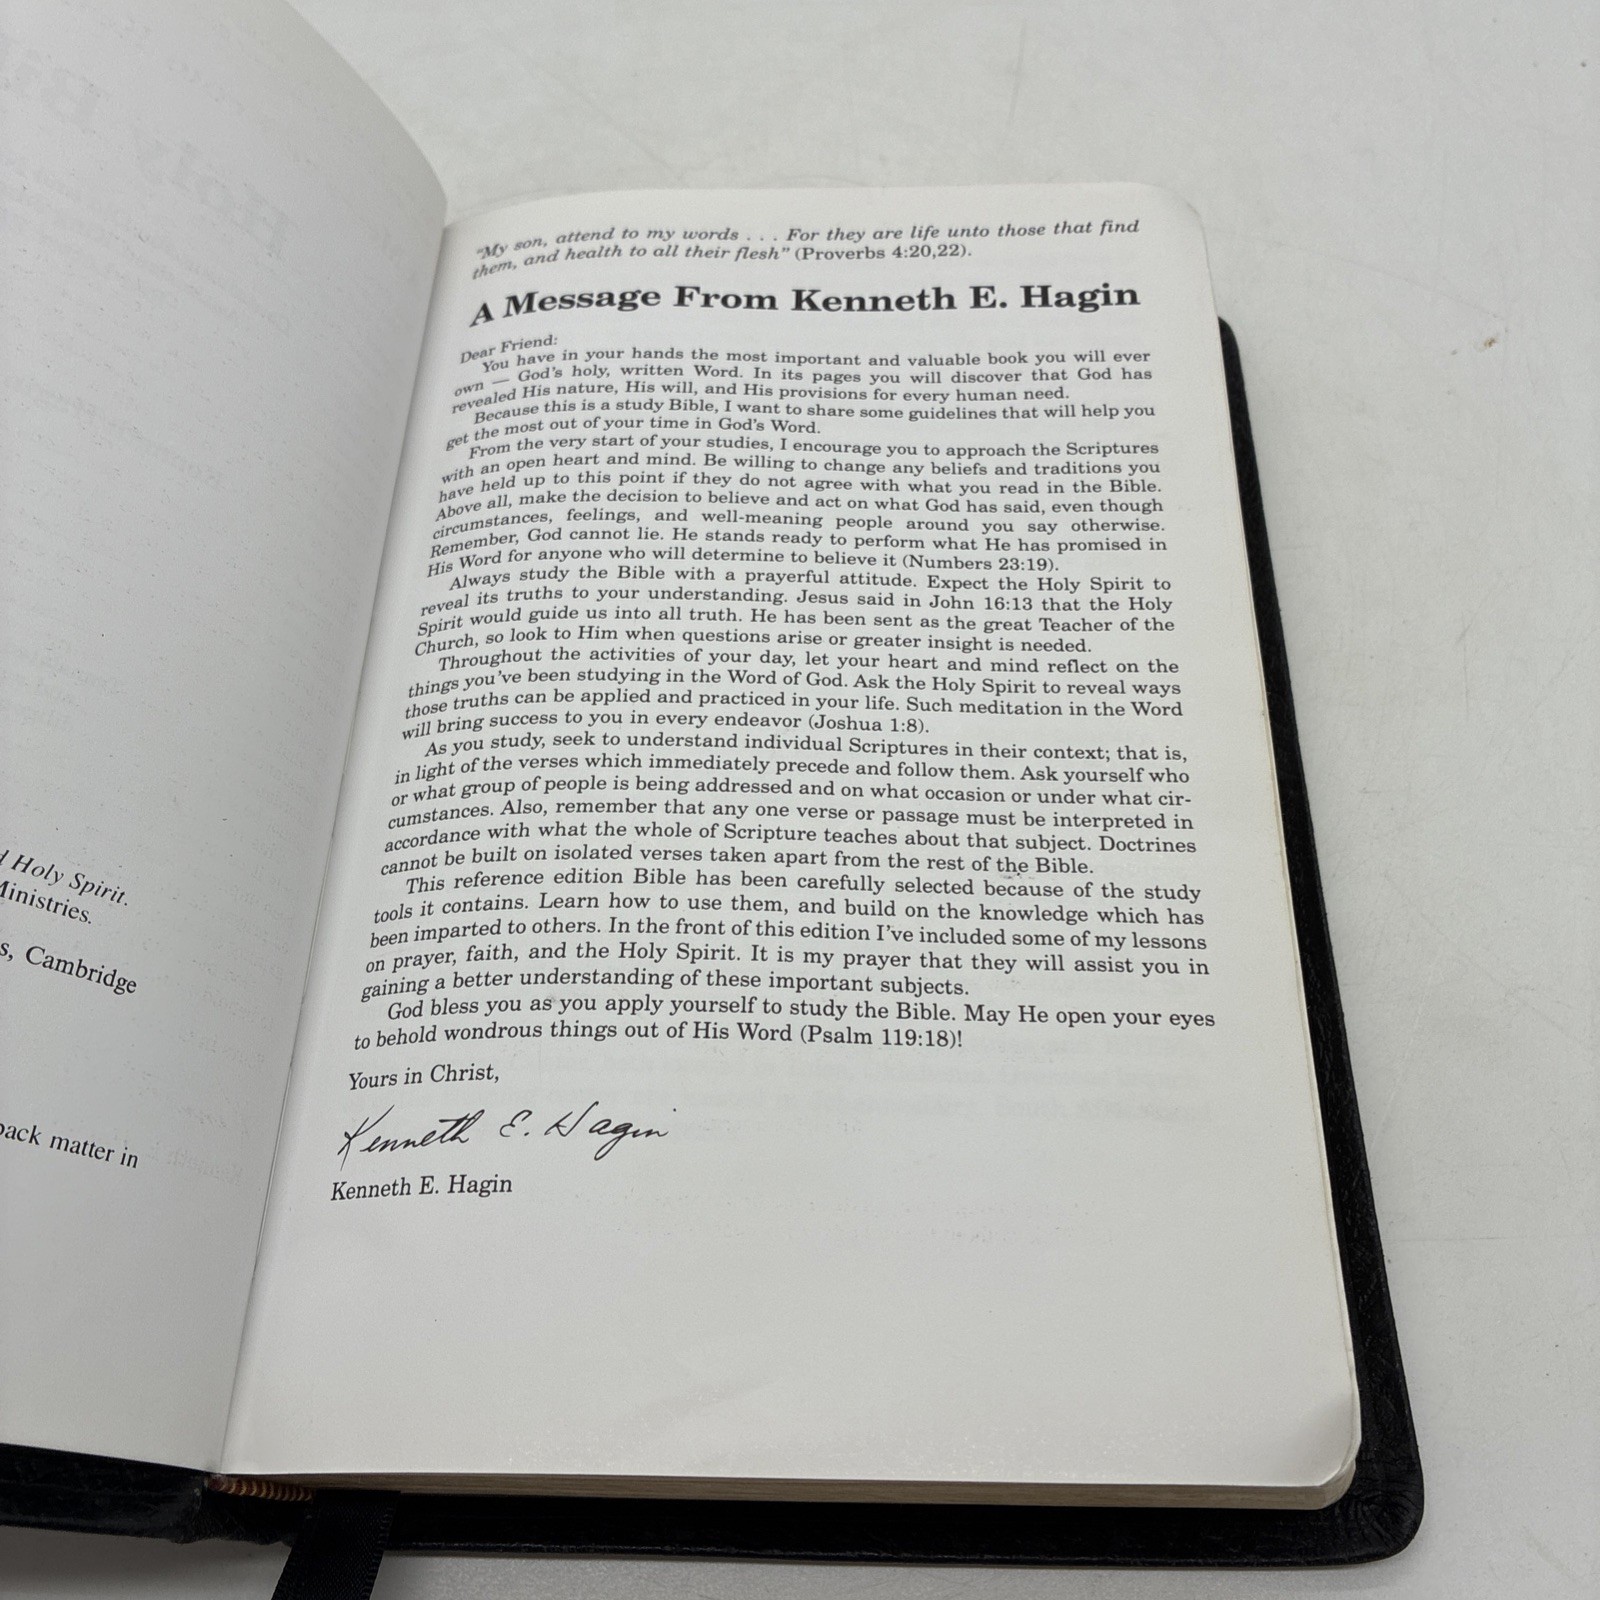 "My son, attend to my words . . . For they are life unto those that find
them, and health to all their flesh" (Proverbs 4:20,22).
A Message From Kenneth E. Hagin
Dear Friend:
You have in your hands the most important and valuable book you will ever
own — God's holy, written Word. In its pages you will discover that God has
revealed His nature, His will, and His provisions for every human need.
Because this is a study Bible, I want to share some guidelines that will help you
get the most out of your time in God's Word.
From the very start of your studies, I encourage you to approach the Scriptures
with an open heart and mind. Be willing to change any beliefs and traditions you
have held up to this point if they do not agree with what you read in the Bible.
Above all, make the decision to believe and act on what God has said, even though
circumstances, feelings, and well-meaning people around you say otherwise.
Remember, God cannot lie. He stands ready to perform what He has promised in
His Word for anyone who will determine to believe it (Numbers 23:19).
Always study the Bible with a prayerful attitude. Expect the Holy Spirit to
reveal its truths to your understanding. Jesus said in John 16:13 that the Holy
Spirit would guide us into all truth. He has been sent as the great Teacher of the
Church, so look to Him when questions arise or greater insight is needed.
Throughout the activities of your day, let your heart and mind reflect on the
things you've been studying in the Word of God. Ask the Holy Spirit to reveal ways
those truths can be applied and practiced in your life. Such meditation in the Word
will bring success to you in every endeavor (Joshua 1:8).
As you study, seek to understand individual Scriptures in their context; that is,
in light of the verses which immediately precede and follow them. Ask yourself who
or what group of people is being addressed and on what occasion or under what cir-
cumstances. Also, remember that any one verse or passage must be interpreted in
accordance with what the whole of Scripture teaches about that subject. Doctrines
cannot be built on isolated verses taken apart from the rest of the Bible.
This reference edition Bible has been carefully selected because of the study
tools it contains. Learn how to use them, and build on the knowledge which has
been imparted to others. In the front of this edition I've included some of my lessons
on prayer, faith, and the Holy Spirit. It is my prayer that they will assist you in
gaining a better understanding of these important subjects.
God bless you as you apply yourself to study the Bible. May He open your eyes
to behold wondrous things out of His Word (Psalm 119:18)!
Yours in Christ,
Kenneth E. Hagin
Kenneth E. Hagin
Holy Spirit.
Ministries.
Cambridge
back matter in